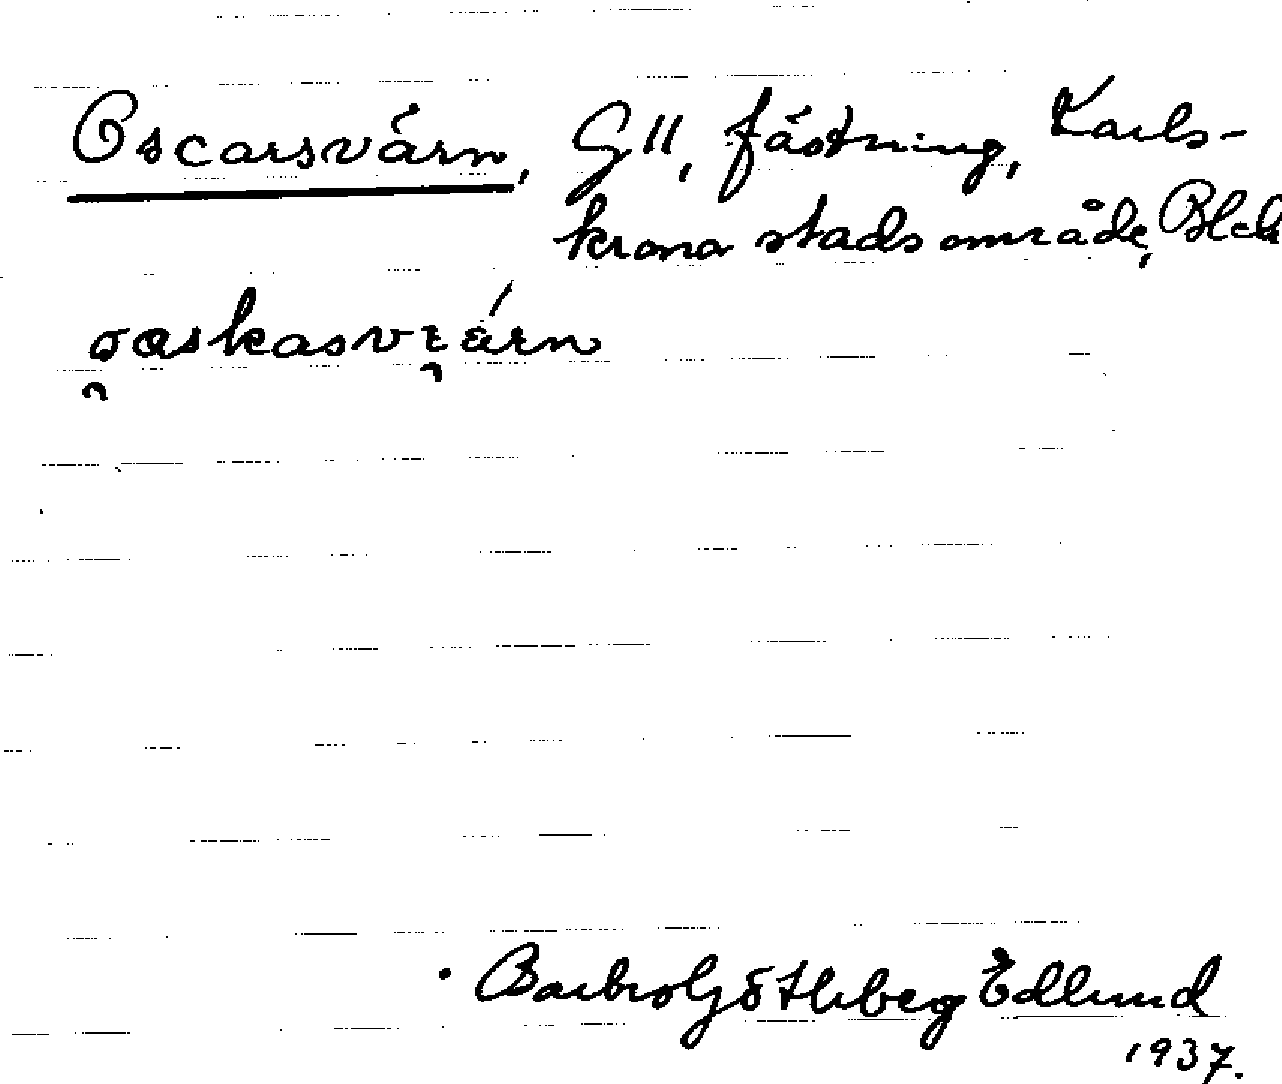 Oscarsvärn, G11, fästning, Karls-
krona stadsområde, Blek
Barbro Götlberg Edlund
1937.